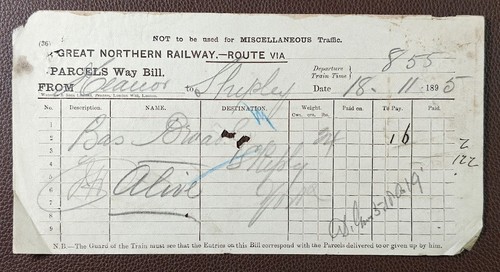 NOT to be used for MISCELLANEOUS Traffic.
(36)
GREAT NORTHERN RAILWAY.—ROUTE VIA
PARCELS Way Bill.
Departure Train Time } 8 55
FROM Heanor to Shipley Date 18 - 11 1895
No. Description. NAME. DESTINATION. Weight. Paid on. To Pay. Paid.
Cwt. qrs. lbs.
1
2 Bas 24 1 6
3
4 Shipley
5 Alive
6 York
7
8
9
N.B.—The Guard of the Train must see that the Entries on this Bill correspond with the Parcels delivered to or given up by him.